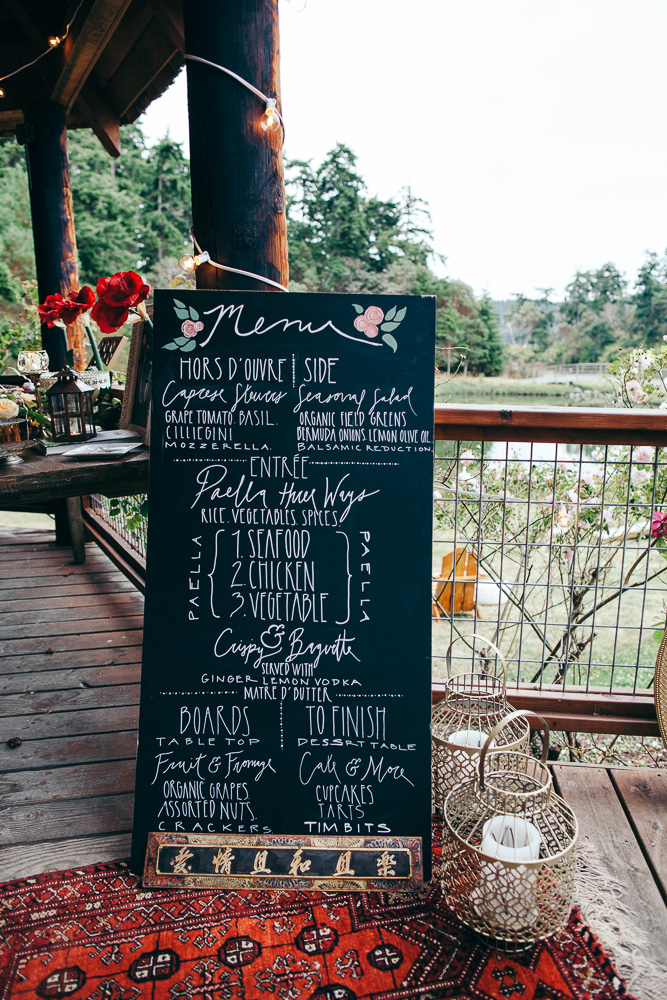 Menu
HORS D'OUVRE
Caprese Skewers
GRAPE TOMATO. BASIL.
CILLIEGINI
MOZZERELLA.
SIDE
Seasonal Salad
ORGANIC FIELD GREENS
BERMUDA ONIONS LEMON OLIVE OIL.
BALSAMIC REDUCTION.
ENTRÉE
Paella three Ways
RICE. VEGETABLES. SPICES
PAELLA
1. SEAFOOD
2. CHICKEN
3. VEGETABLE
PAELLA
Crispy & Baguette
SERVED WITH
GINGER LEMON VODKA
MATRE D'BUTTER
BOARDS
TABLE TOP
Fruit & Fromage
ORGANIC GRAPES.
ASSORTED NUTS.
CRACKERS
TO FINISH
DESSRT TABLE
Cake & More
CUPCAKES
TARTS
TIMBITS
愛情且和且樂